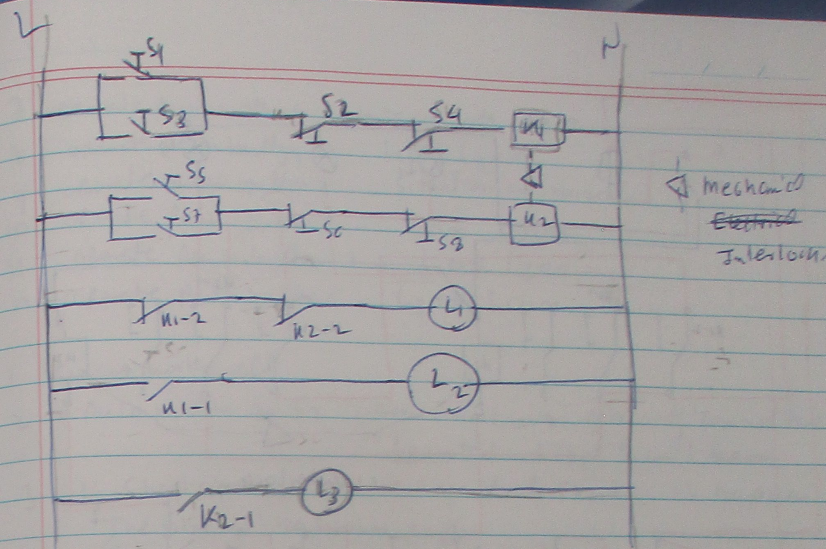 L
N
S1
S3
S2
S4
K1
S5
S7
S6
S8
K2
Mechanical
Electrical
Interlock.
K1-2
K2-2
L1
K1-1
L2
K2-1
L3